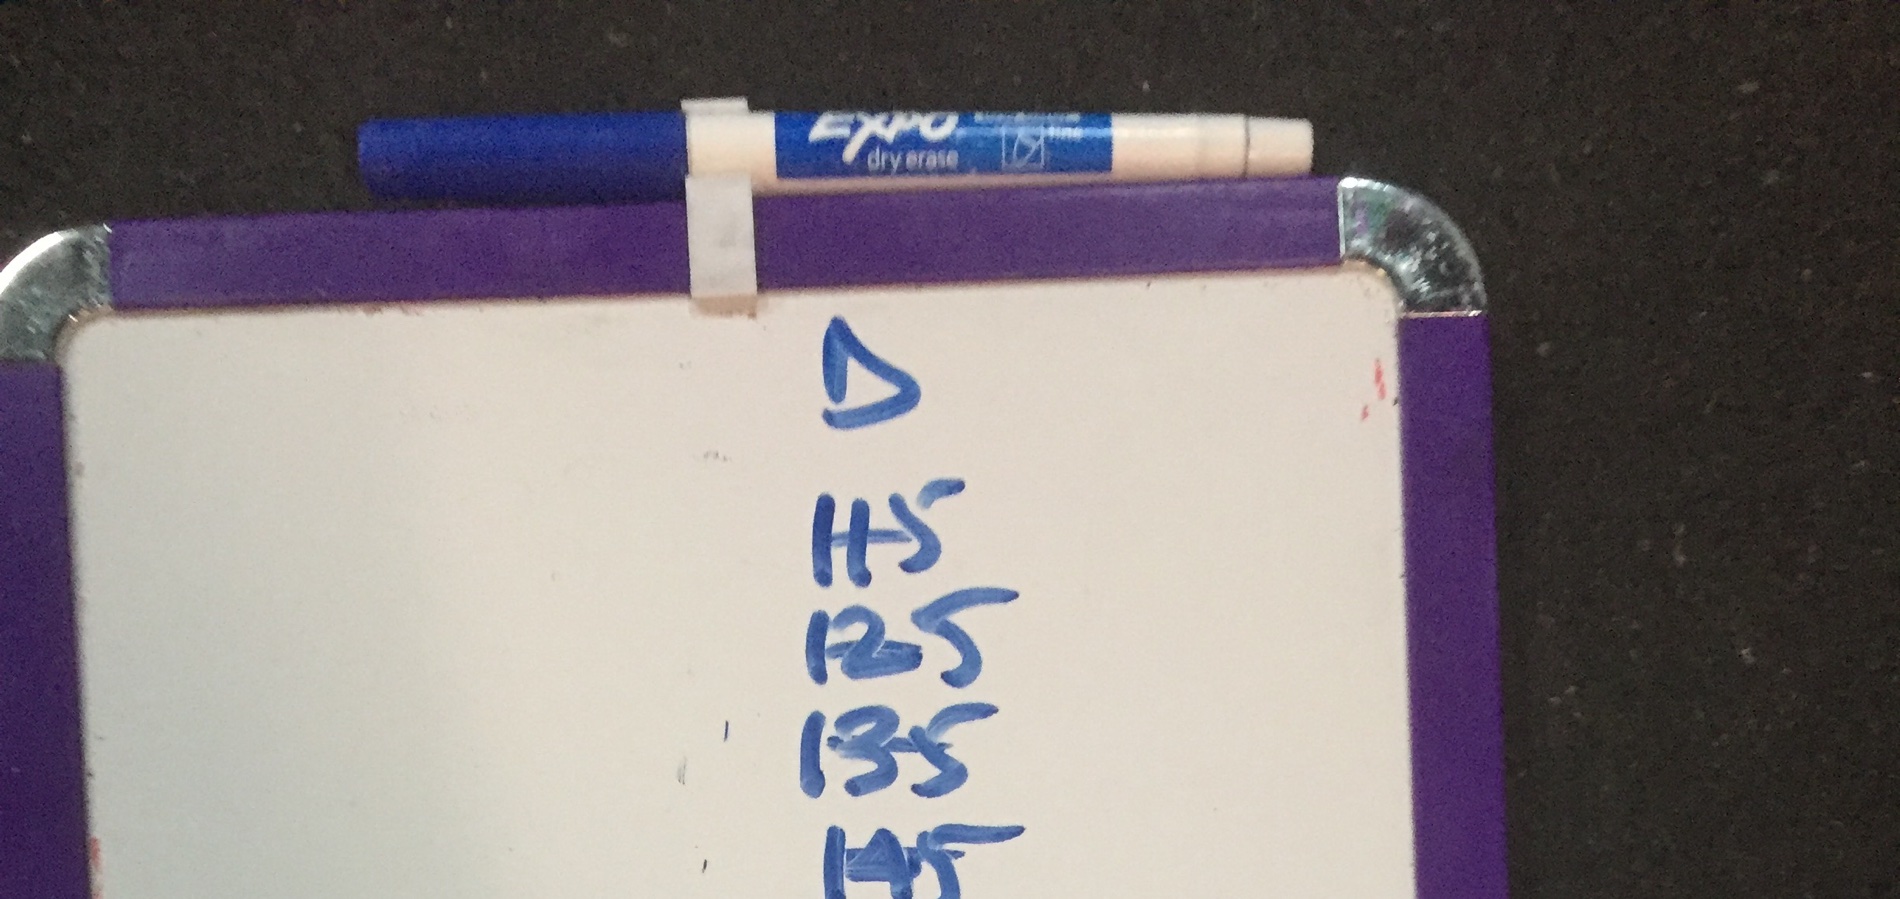 EXPO
dry erase
fine
D
115
125
135
145